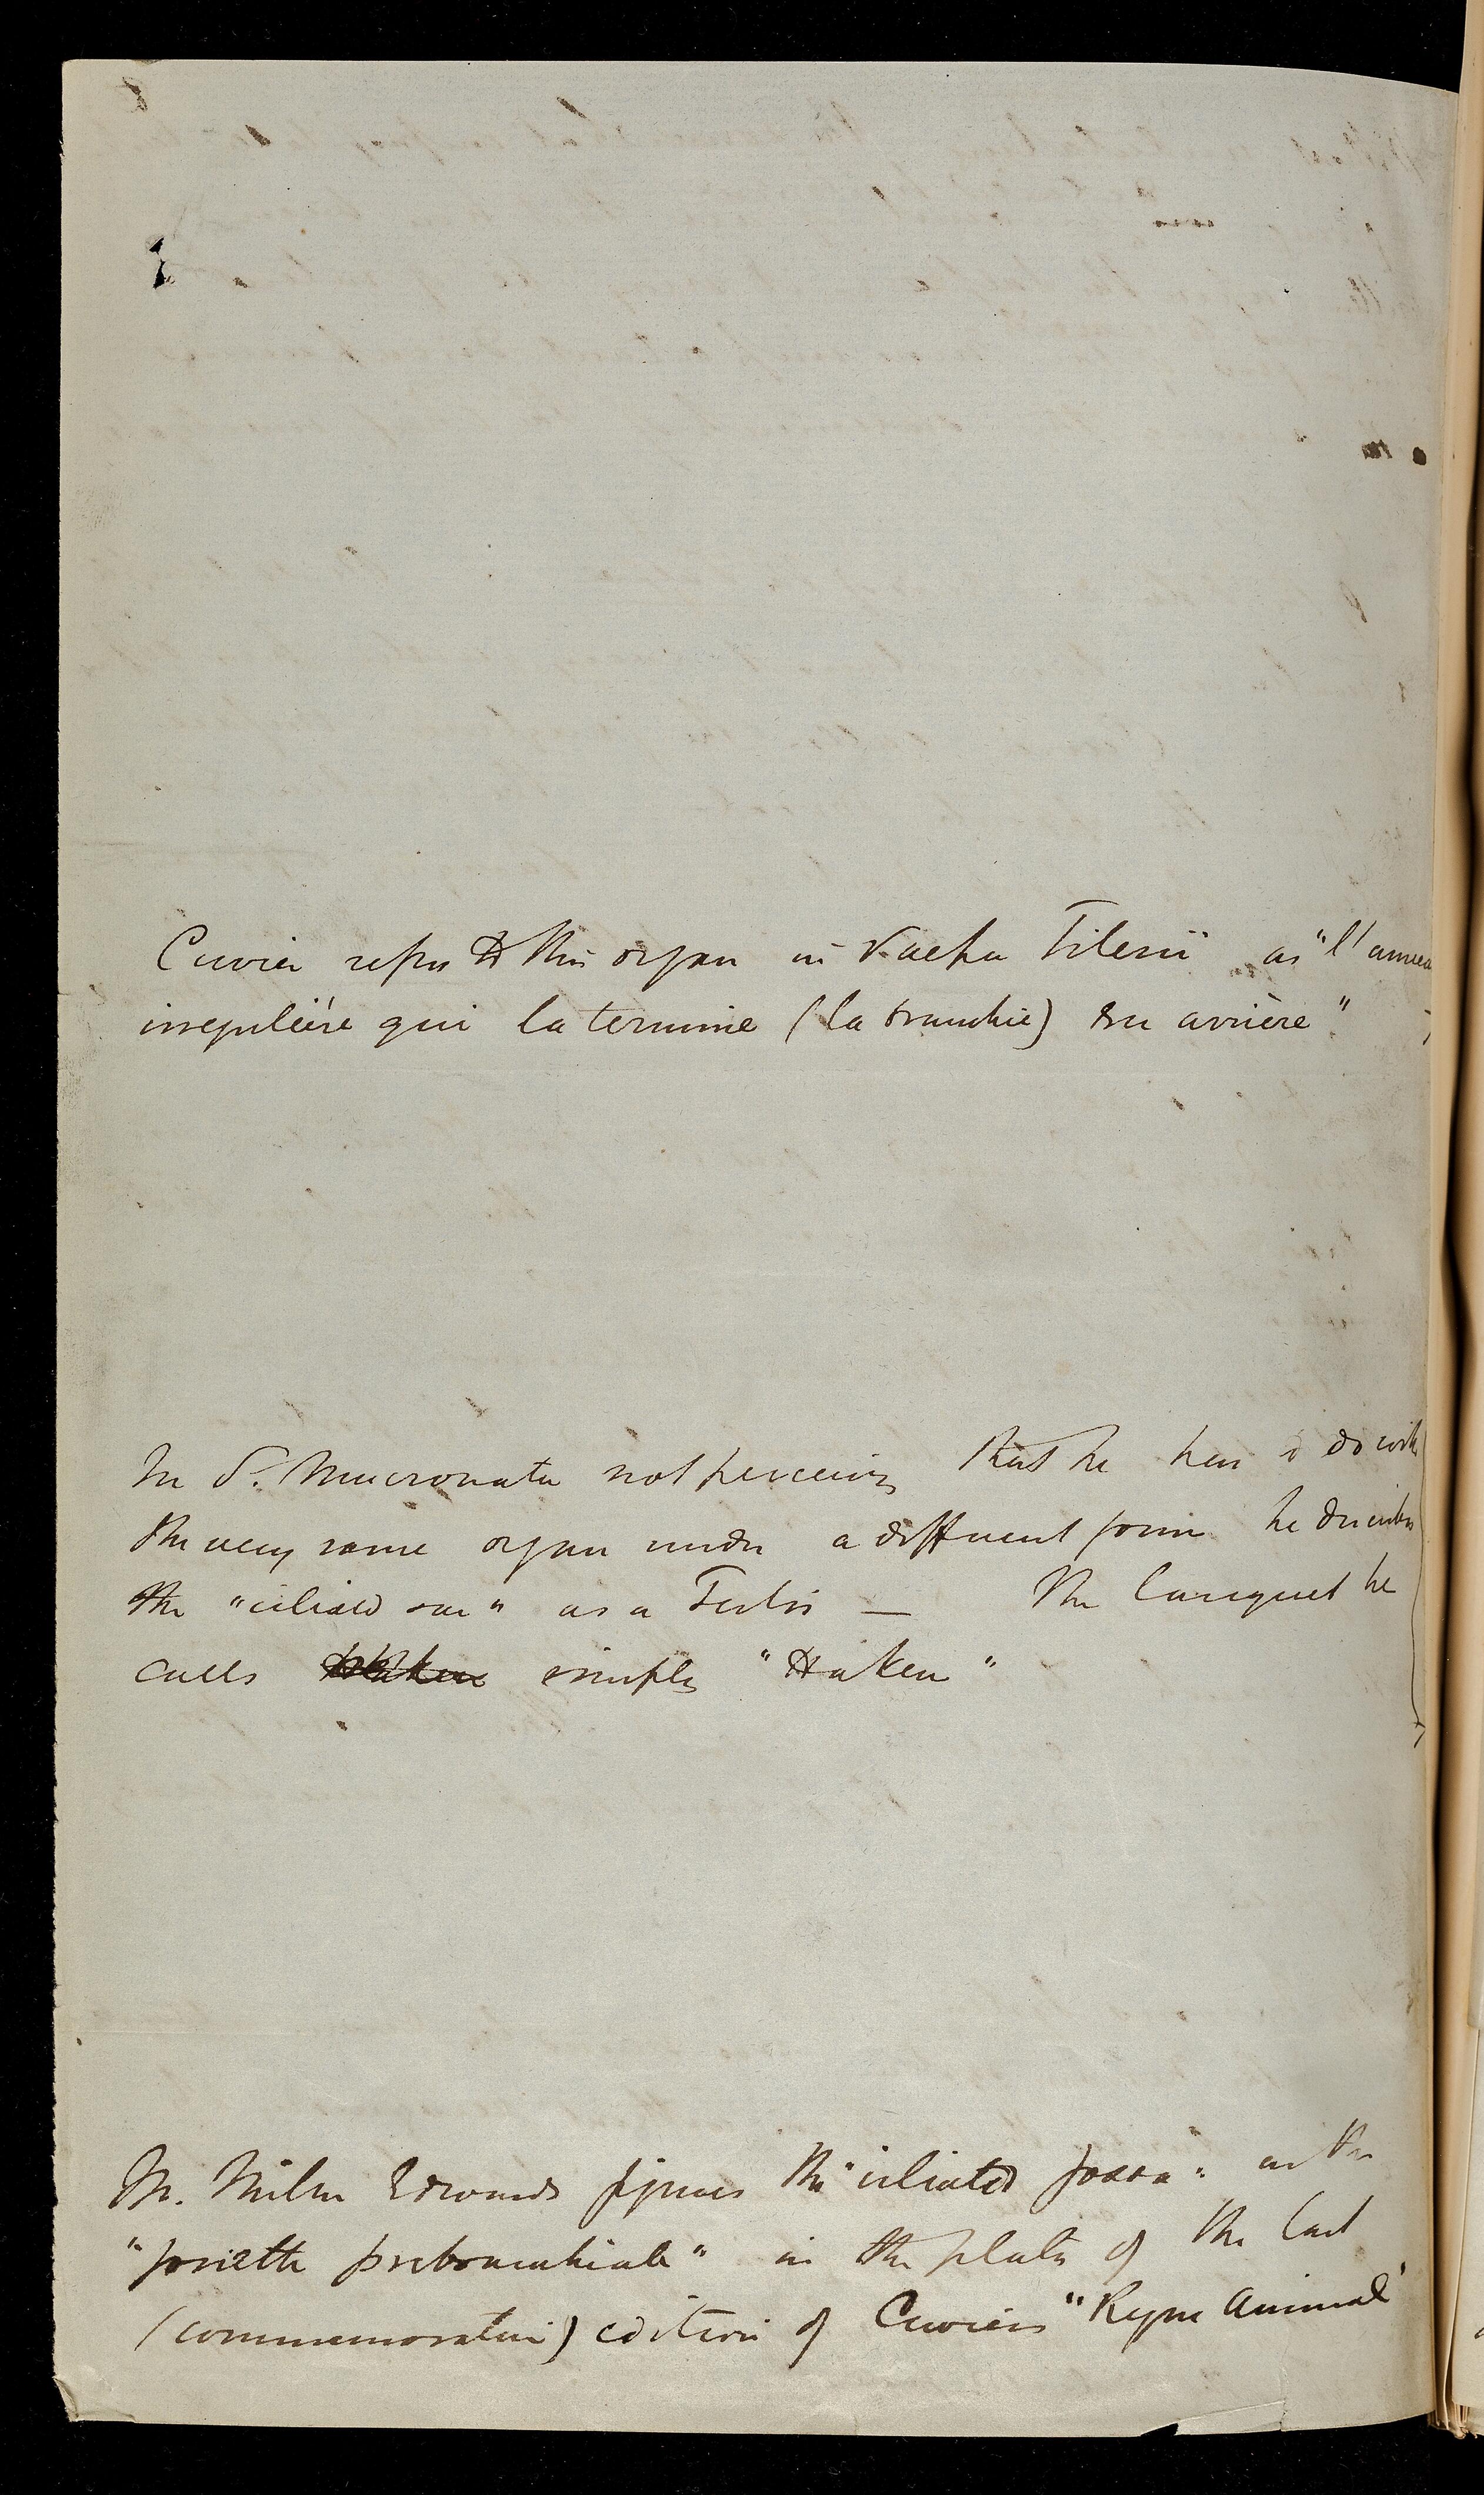 Cuvier refers to this organ in Salpa Tilesii as "l'anneau
irregulière qui la termine (la branchie) en arrière"
In S. Mucronata not perceiving that he has to do with
the very same organ under a different form he describes
the "ciliated sac" as a Testis — The languet he
calls simply "Haken"
M. Milne Edwards figures the "ciliated fossa" as the
"fossette prebranchiale" in the plates of the last
(commemorative) edition of Cuviers "Regne Animal"